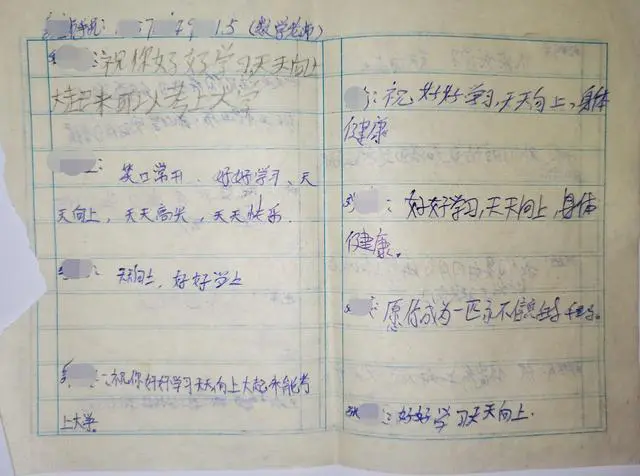 手机: 7 79 15 (数学老师)
:祝你好好学习,天天向上
大起来可以考上大学
: 笑口常开、好好学习、天
天向上,天天高兴,天天快乐.
: 天天向上,好好学上
:祝你好好学习天天向上大起来能考
上大学。
:祝 好好学习,天天向上,身体
健康
: 好好学习,天天向上,身体
健康。
:愿你成为一匹永不
:好好学习天天向上.